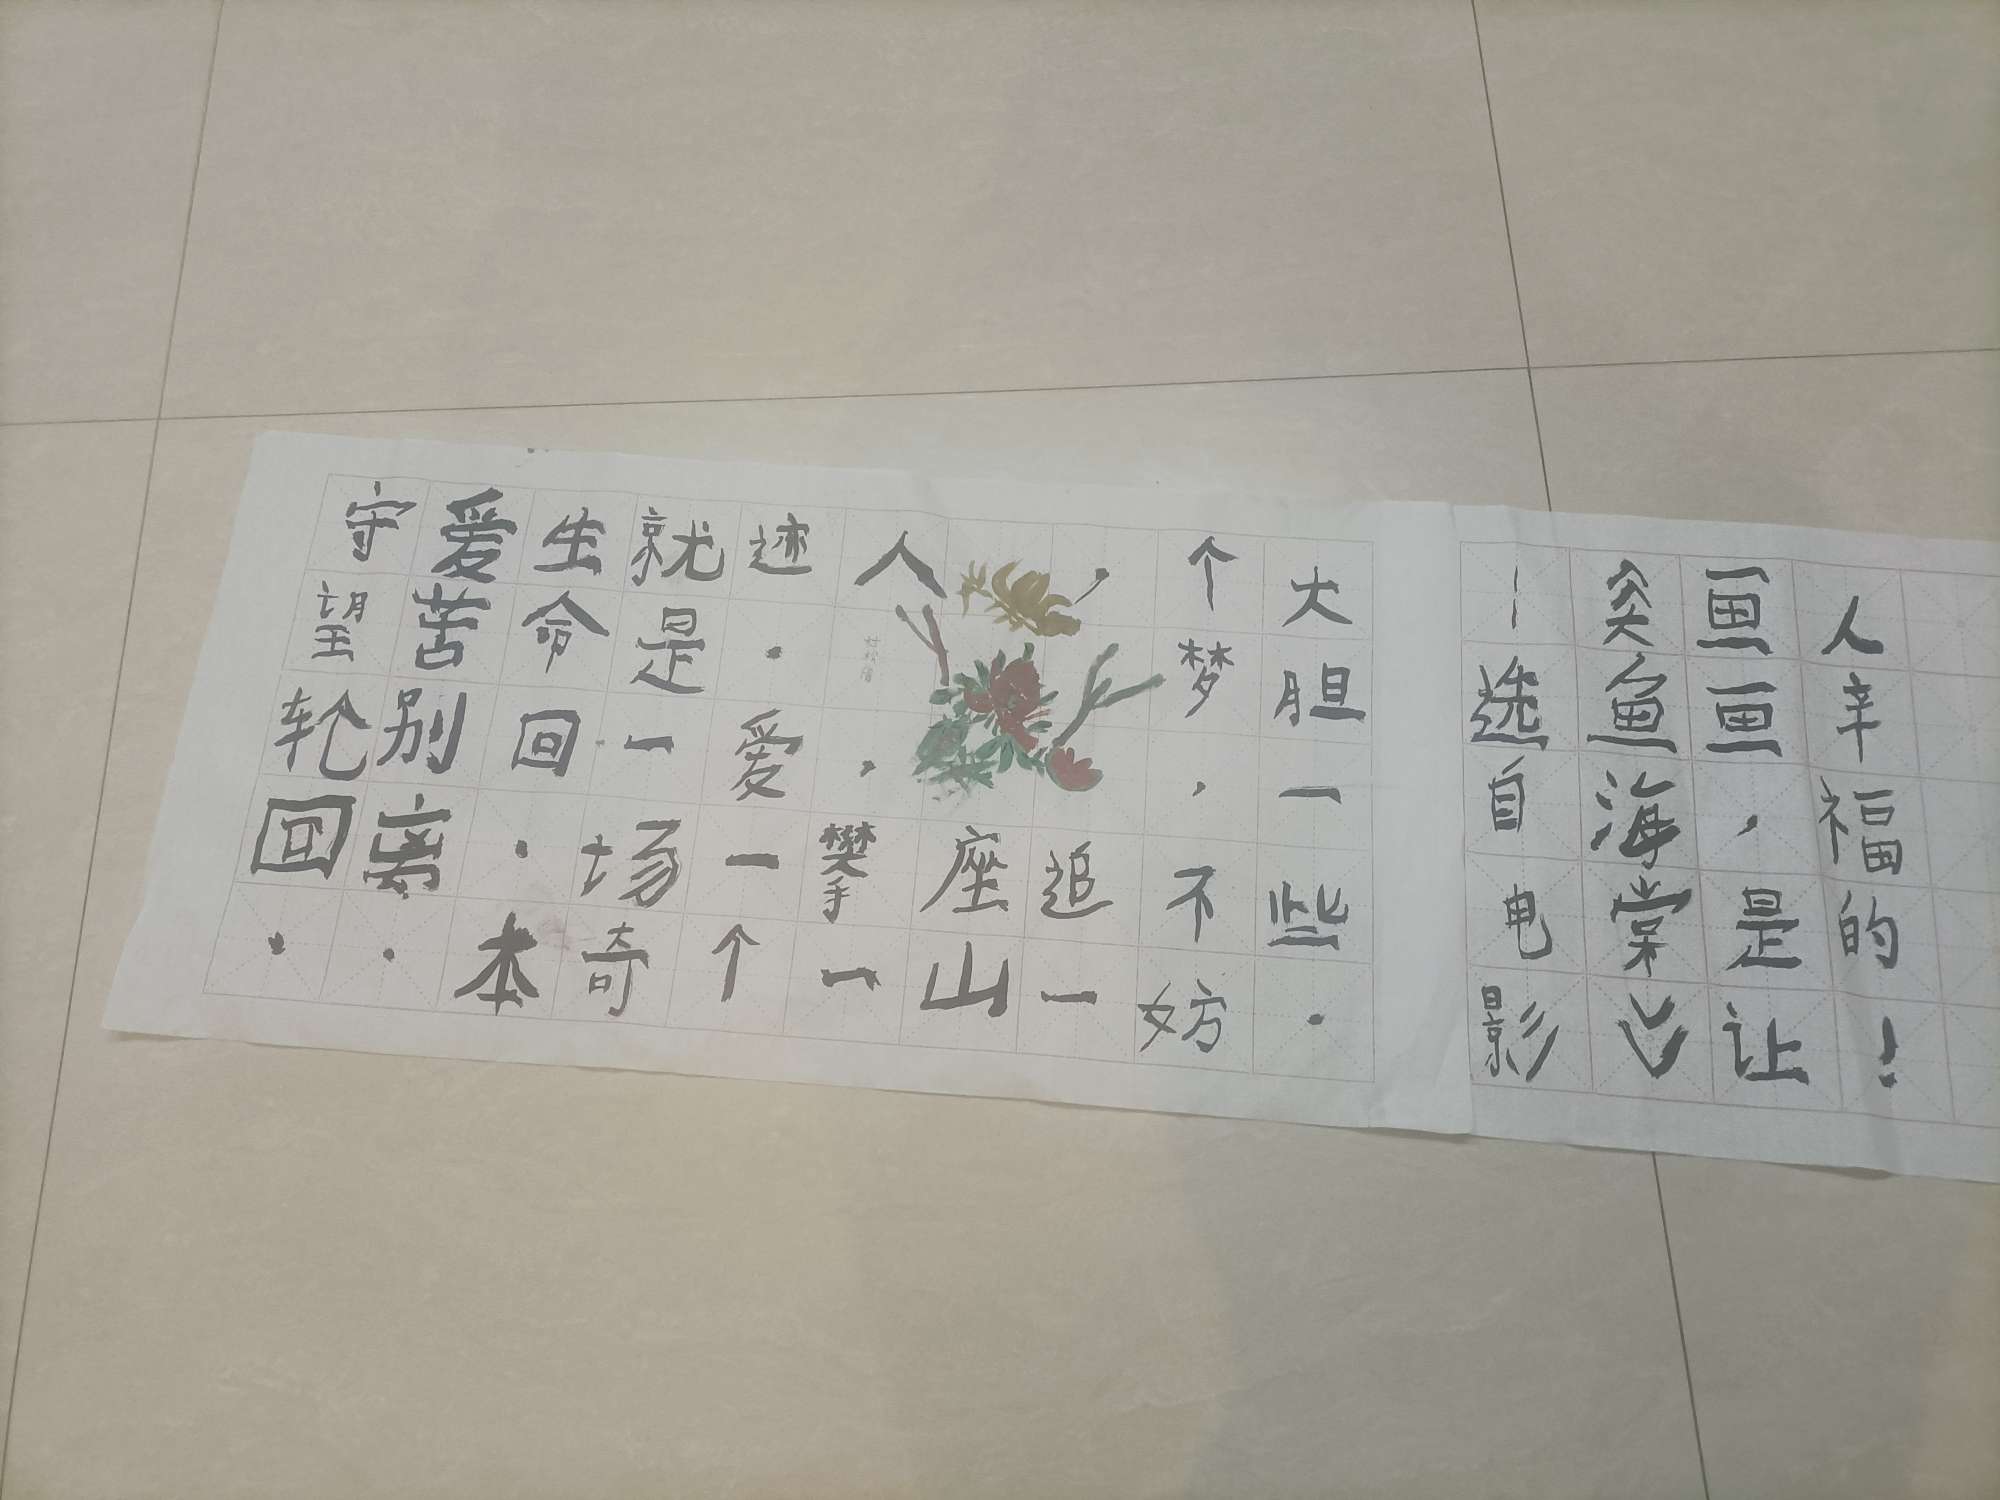 守望轮回.
爱苦别离.
生命回.本
就是一场奇
迹.爱一个
人,攀一
座山
,追一
个梦,不妨
大胆一些.
——选自电影
《大鱼海棠》
画画,是让
人辛福的!